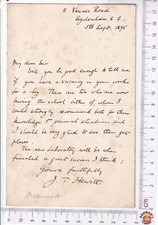 11 Venner Road
Sydenham S.E.
5th Sept. 1895
My dear Sir
Will you be good enough to tell me
if you have a vacancy in a
for a boy. There are two who are now
during the school either of whom I
could strongly recommend both for their
knowledge of several and
I should be very glad to see them get
places.
The new laboratory will be when
finished a great success I think;
Yours faithfully
J. T. Hewitt